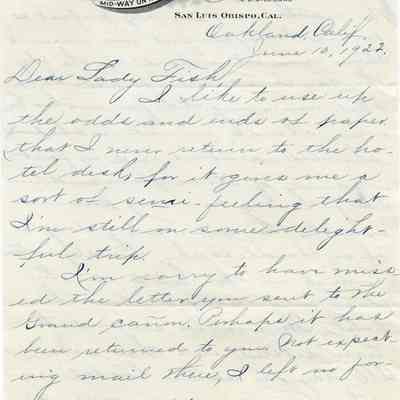 MID-WAY ON
SAN LUIS OBISPO, CAL.
Oakland, Calif.
June 10, 1922.
Dear Lady Fish,
I like to use up
the odds and ends of paper
that I never return to the ho-
tel desk, for it gives me a
sort of semi-feeling that
I'm still on some delight-
ful trip.
I'm sorry to have miss
ed the letter you sent to the
Grand cañon. Perhaps it has
been returned to you. Not expect-
ing mail there, I left no for-